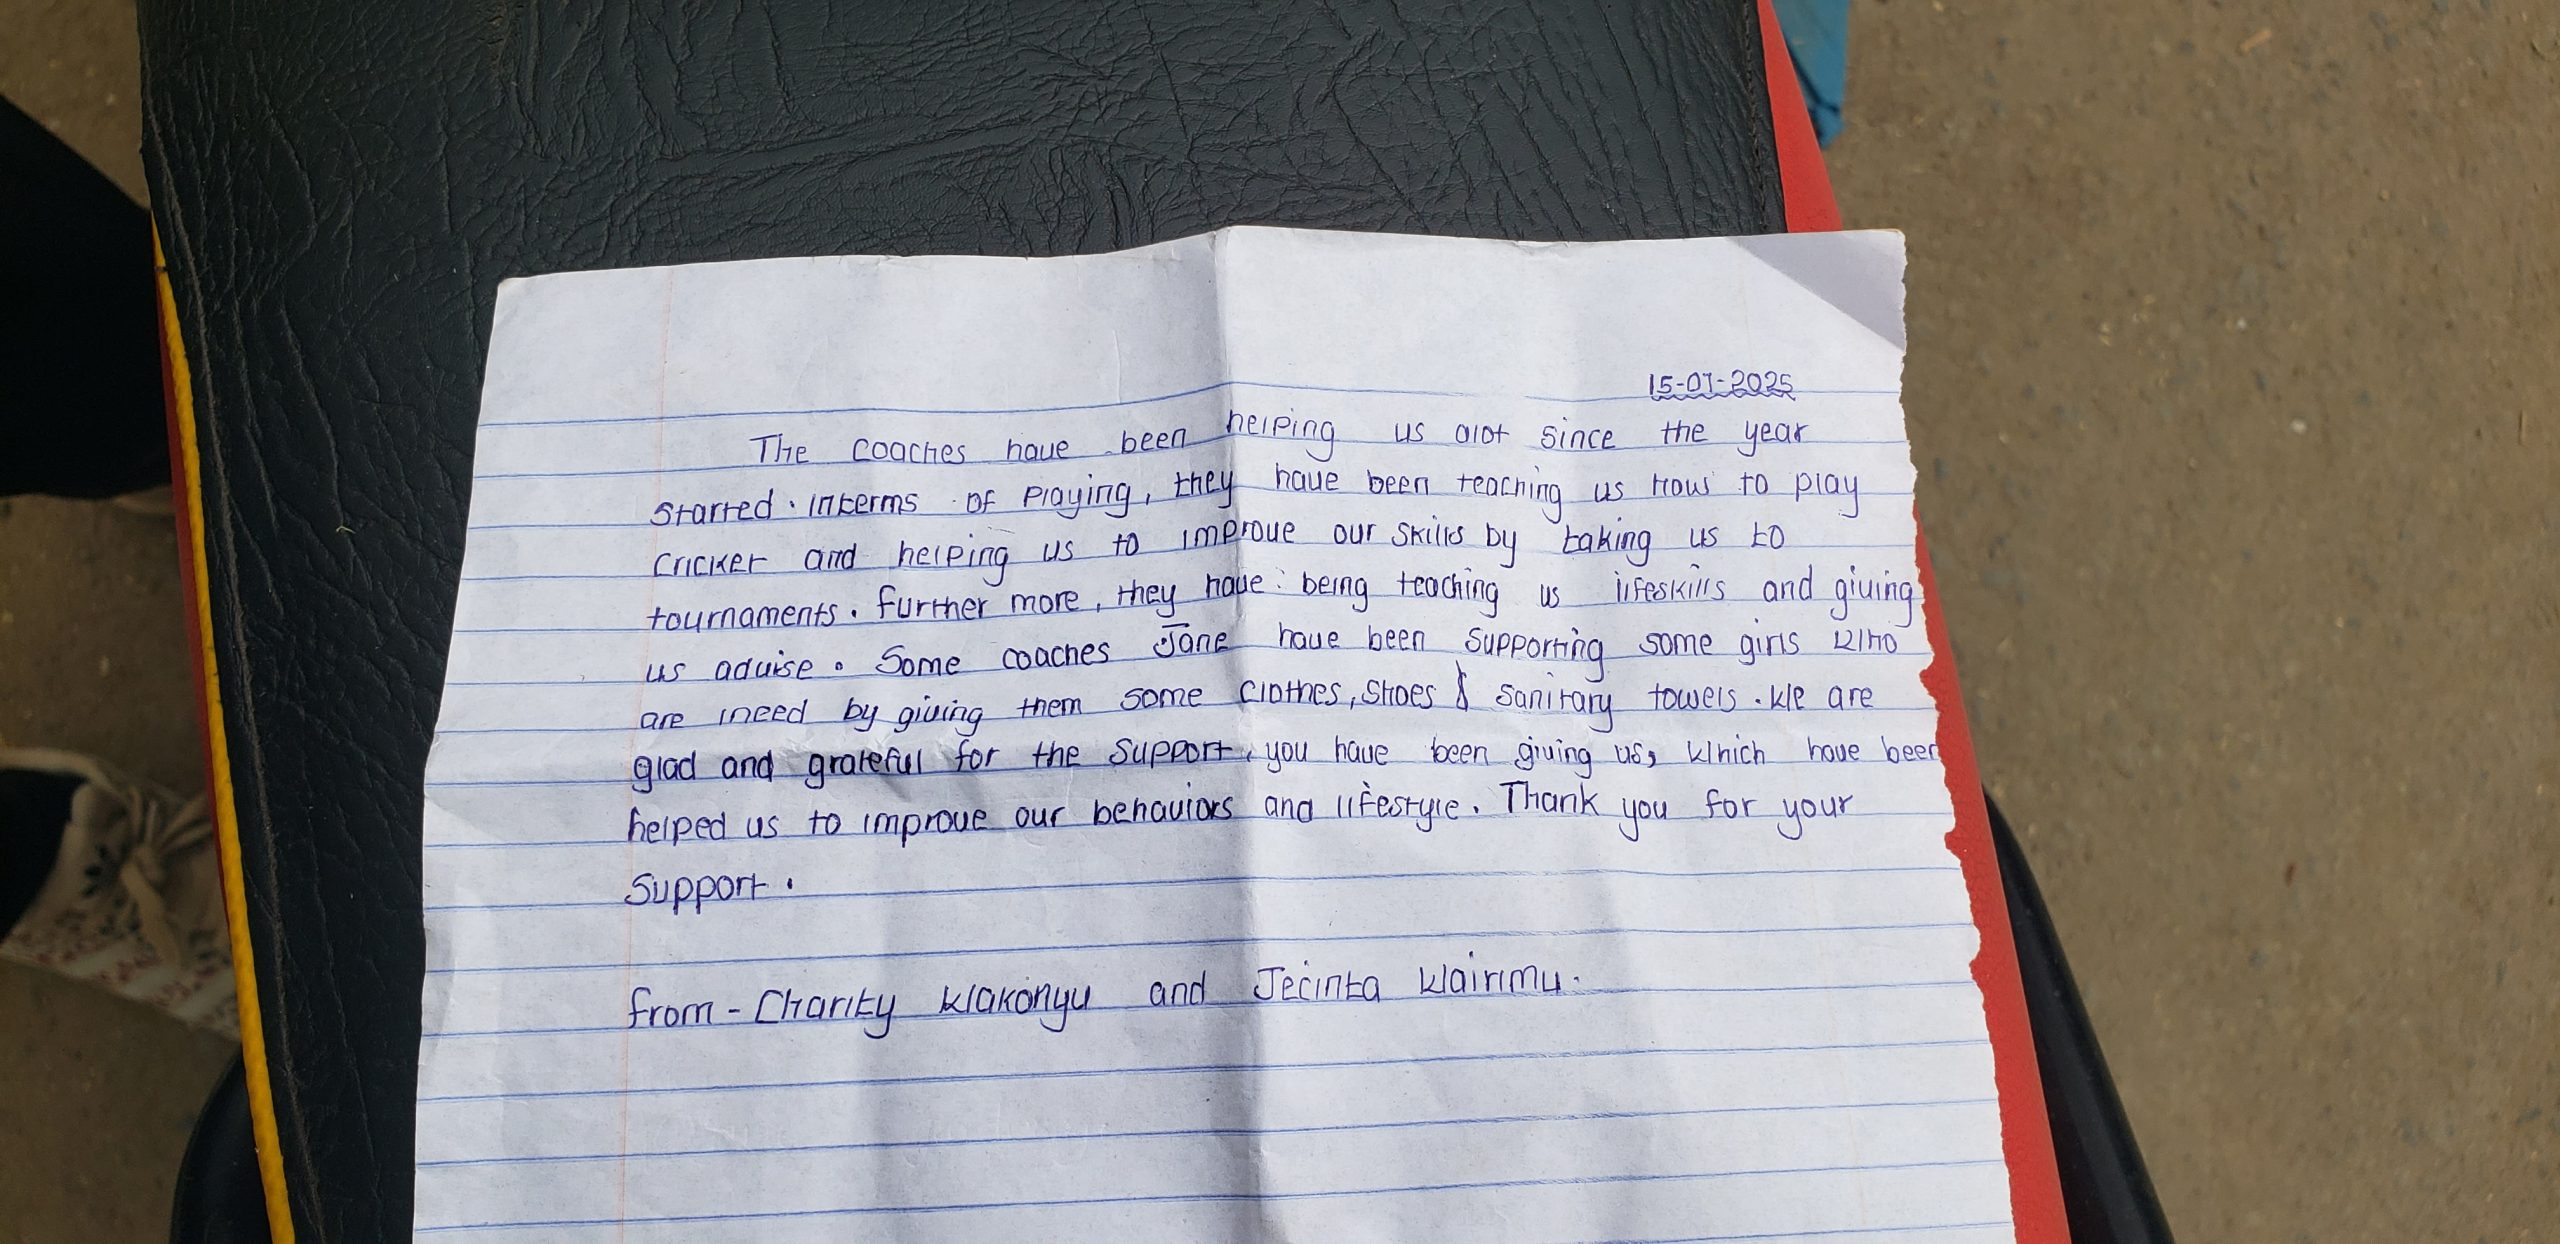 15-07-2025
The coaches have been helping us alot since the year
started. Interms of playing, they have been teaching us how to play
cricket and helping us to improve our skills by taking us to
tournaments. Further more, they have being teaching us lifeskills and giving
us advise. Some coaches Jane have been supporting some girls who
are ineed by giving them some clothes, shoes & sanitary towels. We are
glad and grateful for the support, you have been giving us, which have been
helped us to improve our behaviors and lifestyle. Thank you for your
support.
From - Charity Wakonyu and Jecinta Wairimu.